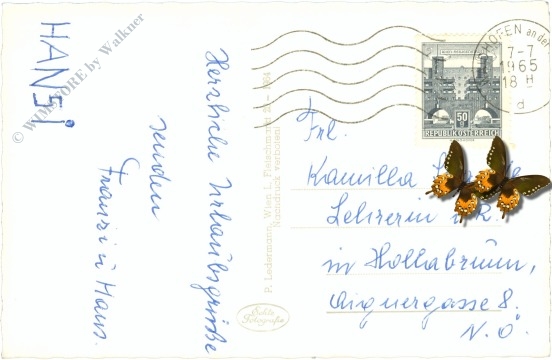 HANSi
Herzliche Urlaubsgrüße
senden
Franzi u Hans.
P. Ledermann, Wien I, Fleischmarkt 20 - 1964
Nachdruck verboten!
Echte
Fotografie
HOFEN an der
7-7
1965
18
d
50
REPUBLIK ÖSTERREICH
Frl.
Kamilla
Lehrerin i. R.
in Hollabrunn,
Aignergasse 8.
N. Ö.
© WIMSTORE by Walkner